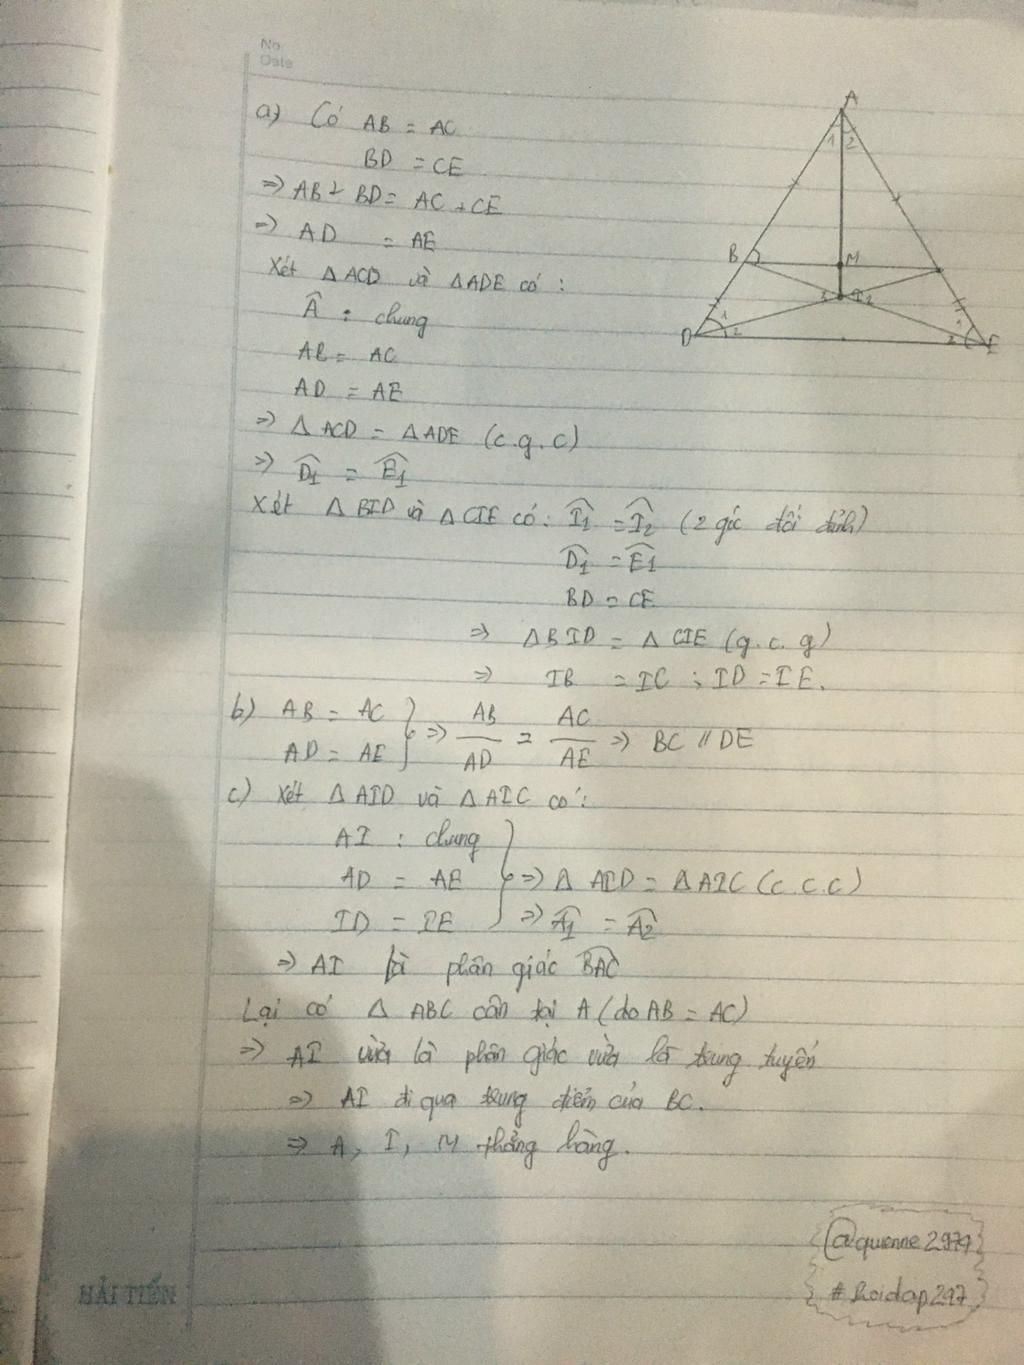 No.
Date
a) Có AB = AC
BD = CE
=> AB + BD = AC + CE
=> AD = AE
Xét Δ ACD và Δ ADE có :
Â : chung
AB = AC
AD = AE
=> Δ ACD = Δ ADE (c.g.c)
=> D̂1 = Ê1
Xét Δ BID và Δ CIE có: Î1 = Î2 (2 góc đối đỉnh)
D̂1 = Ê1
BD = CE
=> Δ BID = Δ CIE (g.c.g)
=> IB = IC ; ID = IE.
b) AB = AC
AD = AE } => AB/AD = AC/AE => BC // DE
c) Xét Δ AID và Δ AIC có:
AI : chung
AD = AE } => Δ AID = Δ AIC (c.c.c)
ID = IE => Â1 = Â2
=> AI là phân giác BAC
Lại có Δ ABC cân tại A (do AB = AC)
=> AI vừa là phân giác vừa là trung tuyến
=> AI đi qua trung điểm của BC.
=> A, I, M thẳng hàng.
A
1 2
B
M
1 I 2
1
1
D 2
2 E
@quenne2979
# hoidap297
HẢI TIẾN